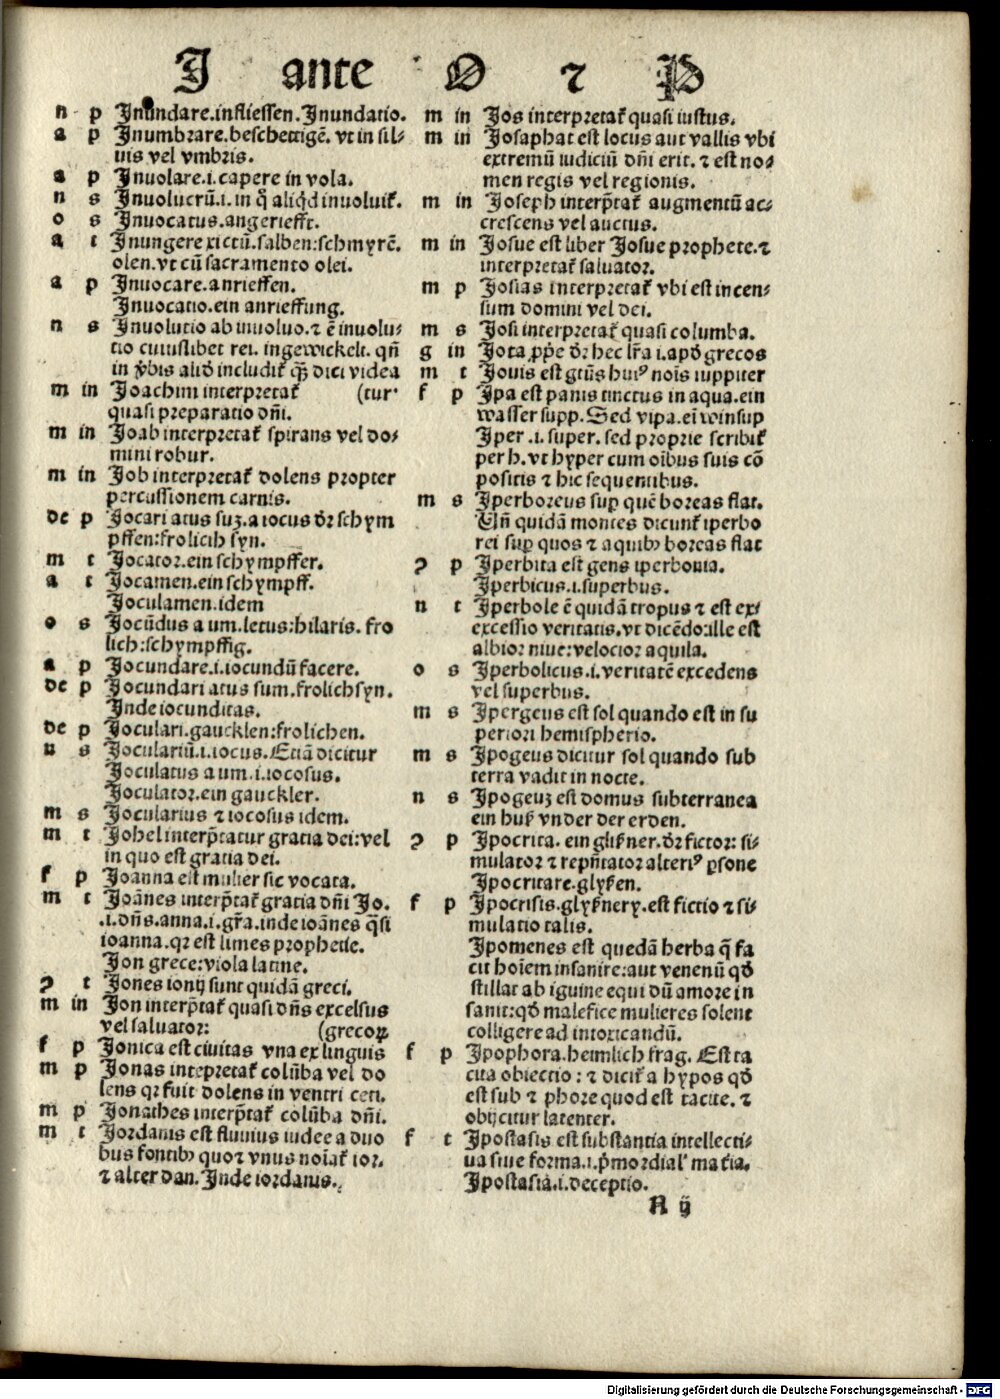 J ante O ⁊ P
n p Inundare.infliessen.Inundatio.
a p Inumbrare.beschettigē. vt in sil⸗
uis vel vmbris.
a p Inuolare.i.capere in vola.
n s Inuolucrū.i. in q̄ aliq̇d inuoluit᷑.
o s Inuocatus.angeriefft.
a t Inungere xi ctū.salben:schmyrē.
olen.vt cū sacramento olei.
a p Inuocare.anrieffen.
Inuocatio.ein anrieffung.
n s Inuolutio ab inuoluo.⁊ ē inuolu⸗
tio cuiuslibet rei. ingewickelt. qn̄
in v̾bis aliq̇d includit᷑ qꝫ̄ dici videa
m in Joachim interpretat᷑ (tur·
quasi preparatio dn̄i.
m in Joab interpretat᷑ spirans vel do⸗
mini robur.
m in Job interpretat᷑ dolens propter
percussionem carnis.
de p Jocari atus suꝫ.a iocus dr̄ schym
pffen:frolich syn.
m t Jocator.ein schympffer.
a t Jocamen.ein schympff.
Joculamen.idem
o s Jocūdus a um.letus:hilaris. fro
lich:schympffig.
a p Jocundare.i.iocundū facere.
de p Jocundari atus sum.frolich syn.
Inde iocunditas.
de p Joculari.gaucklen:frolichen.
n s Joculariū.i.iocus.Etiā dicitur
Joculatus a um.i.iocosus.
Joculator.ein gauckler.
m s Jocularius ⁊ iocosus idem.
m t Johel interp̄tatur gratia dei:vel
in quo est gratia dei.
f p Joanna est mulier sic vocata.
m t Joānes interp̄tat᷑ gratia dn̄i Jo.
.i.dn̄s.anna.i.gr̄a.inde ioānes q̄si
ioanna.qꝛ est limes prophetie.
Jon grece:viola latine.
ꝯ t Jones ionij sunt quidā greci.
m in Jon interp̄tat᷑ quasi dn̄s excelsus
vel saluator: (grecoꝝ
f p Jonica est ciuitas vna ex linguis
m p Jonas intepretat᷑ colūba vel do
lens qꝛ fuit dolens in ventri ceti.
m p Jonathes interp̄tat᷑ colūba dn̄i.
m t Jordanis est fluuius iudee a duo
bus fontibꝰ quoꝝ vnus noīat᷑ ior.
⁊ alter dan.Inde iordanis.
m in Jos interpretat᷑ quasi iustus.
m in Josaphat est locus aut vallis vbi
extremū iudiciū dn̄i erit. ⁊ est no⸗
men regis vel regionis.
m in Joseph interp̄tat᷑ augmentū ac⸗
crescens vel auctus.
m in Josue est liber Josue prophete.⁊
interpretat᷑ saluator.
m p Josias interpretat᷑ vbi est incen⸗
sum domini vel dei.
m s Josi interpretat᷑ quasi columba.
g in Jota ꝓp̄e dr̄ hec lr̄a i.apd̄ grecos
m t Jouis est gtūs huiꝰ noīs iuppiter
f p Ipa est panis tinctus in aqua.ein
wasser supp.Sed vipa.eī winsup
Iper .i. super. sed proprie scribit᷑
per h. vt hyper cum oībus suis cō
positis ⁊ hic sequentibus.
m s Iperboreus sup̱ quē boreas flat.
Un̄ quidā montes dicunt᷑ iperbo
rei sup̱ quos ⁊ a quibꝰ boreas flat
ꝯ p Iperbita est gens iperbonia.
Iperbicus.i.superbus.
n t Iperbole ē quidā tropus ⁊ est ex⸗
excessio veritatis.vt dicēdo:ille est
albior niue:velocior aquila.
o s Iperbolicus.i.veritatē excedens
vel superbus.
m s Ipergeus est sol quando est in su
periori hemispherio.
m s Ipogeus dicitur sol quando sub
terra vadit in nocte.
n s Ipogeuꝫ est domus subterranea
ein huß vnder der erden.
ꝯ p Ipocrita. ein glißner.dr̄ fictor: si⸗
mulator ⁊ repn̄tator alteriꝰ ꝑsone
Ipocritare.glyßen.
f p Ipocrisis.glyßnery.est fictio ⁊ si⸗
mulatio talis.
Ipomenes est quedā herba q̄ fa
cit hoīem insanire:aut venenū qd̄
stillat ab iguine equi dū amore in
sanit:qd̄ malefice mulieres solent
colligere ad intoxicandū.
f p Ipophora.heimlich frag. Est ta
cita obiectio : ⁊ dicit᷑ a hypos qd̄
est sub ⁊ phore quod est tacite. ⁊
obijcitur latenter.
f t Ipostasis est substantia intellecti⸗
ua siue forma.i.p̄mordial' mat̄ia.
Ipostasia.i.deceptio.
R ij
Digitalisierung gefördert durch die Deutsche Forschungsgemeinschaft - DFG